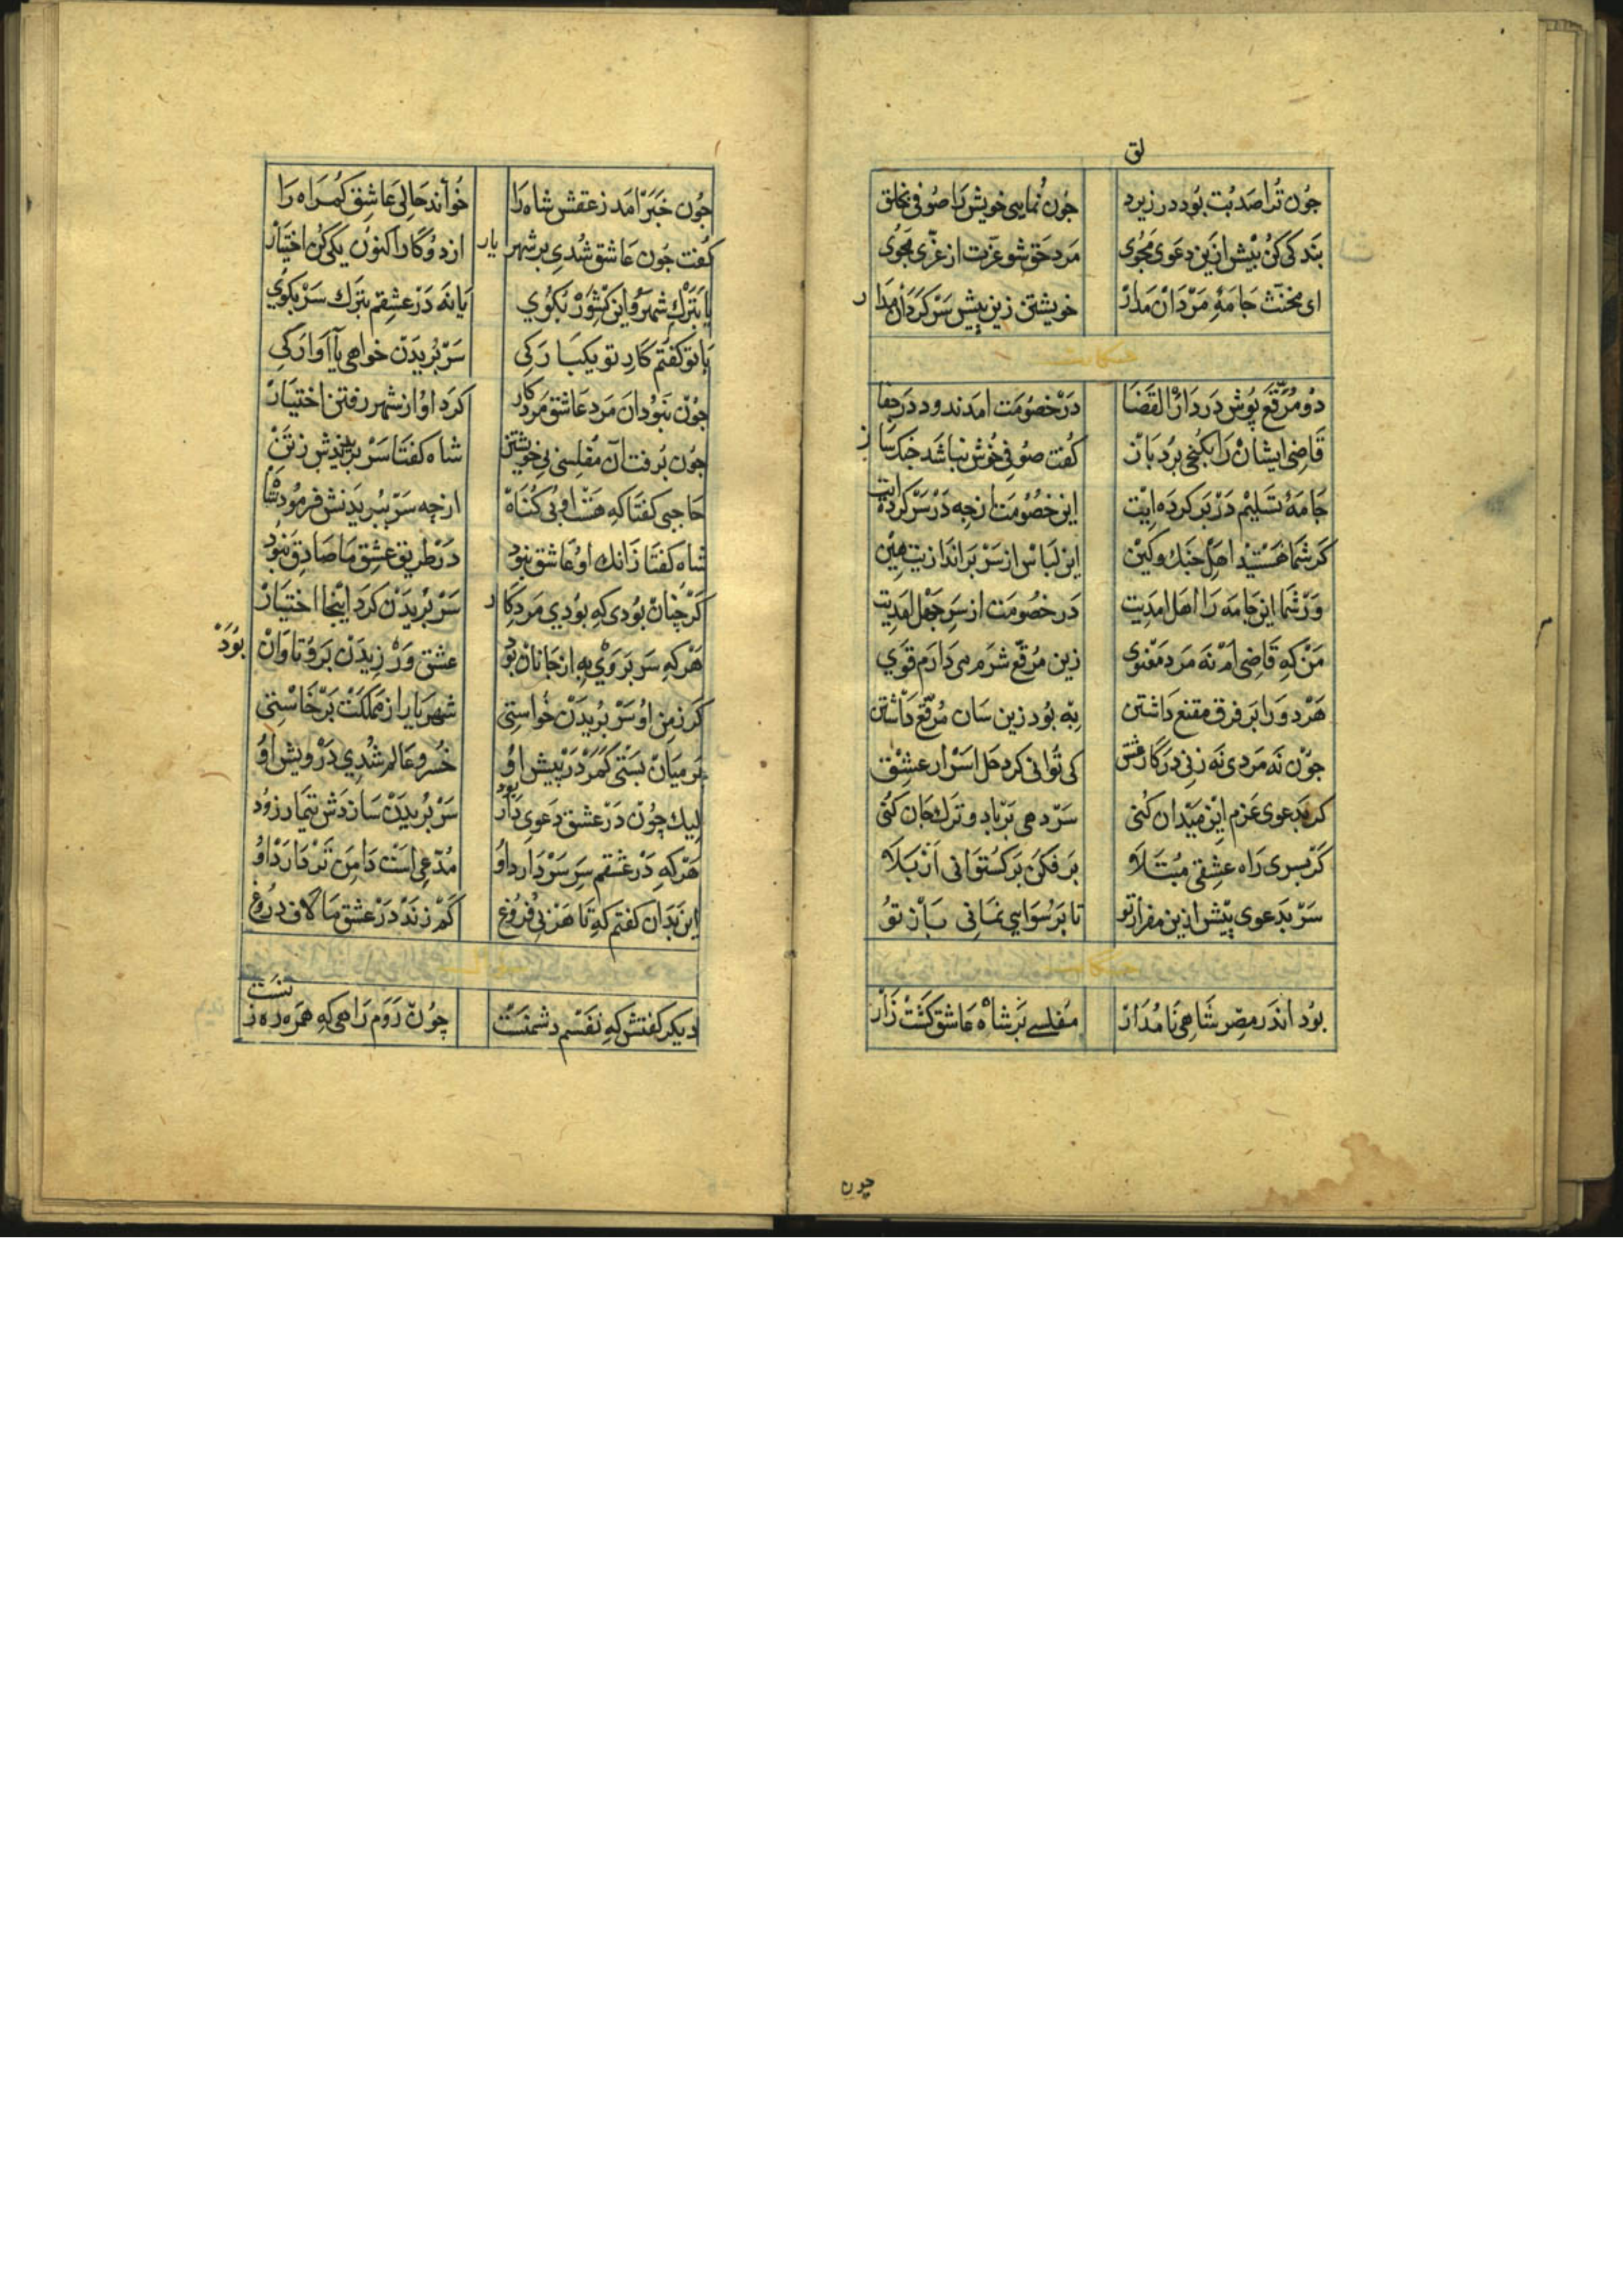 لق
جون ترا صد بت بود در زیر دلق جون نمایی خویش را صوفی بخلق
ای مخنث جامهٔ مردان مدار خویشتن زین بیش سرکردان مدار
حکایت
دو مرقع پوش در دار القضا در خصومت امدند و در جفا
قاضی ایشان را بکنجی برد باز کفت صوفی خوش نباشد جنک ساز
جامهٔ تسلیم در بر کرده ایت این خصومت از جه در سر کرده ایت
کر شما هستید اهل جنک و کین این لباس از سر براندازیت هین
ور شما این جامه را اهل امدیت در خصومت از سر جهل امدیت
من که قاضی ام نه مرد معنوی زین مرقع شرم می دارم قوی
هر دو را بر فرق مقنع داشتن به بود زین سان مرقع داشتن
جون نه مردی نه زنی در کار عشق کی توانی کرد حل اسرار عشق
کر بدعوی عزم این میدان کنی سر دهی بر باد و ترک جان کنی
کر بسری راه عشقی مبتلاو بر فکن برکستوانی از بلاو
سر بدعوی بیش ازین مفراز تو تا برسوایی نمانی باز تو
حکایت
بود اندر مصر شاهی نامدار مفلسی بر شاه عاشق کشت زار
چون
جون خبر امد ز عقشش شاه را خواند حالی عاشق کمراه را
کفت جون عاشق شدی بر شهریار از دو کار اکنون یکی کن اختیار
یا بترک شهر و این کشور بکوی یا نه در عشقم بترک سر بکوی
با تو کفتم کار تو یکبارکی سر بریدن خواهی یا آوارکی
جون نبود ان مرد عاشق مرد کار کرد او از شهر رفتن اختیار
جون برفت آن مفلس بی خویشتن شاه کفتا سر ببریدش ز تن
حاجبی کفتا که هست او بی کناه از چه سر ببریدنش فرمود شاه
شاه کفتا زانک او عاشق نبود در طریق عشق ما صادق نبود
کر چنان بودی که بودی مرد کار سر بریدن کرد اینجا اختیار
هر که سر بر وی به از جانان بود عشق ورزیدن برو تاوان بود
کر ز من او سر بریدن خواستی شهریار از مملکت برخاستی
بر میان بستی کمر در پیش او خسرو عالم شدی درویش او
لیک چون در عشق دعوی دار بود سر بریدن سازدش تیمار زود
هر که در عشقم سر سر دارد او مدعی است دامن تر دارد او
این بدان کفتم که تا هر بی فروغ کم زند در عشق ما لاف دروغ
دیکر کفتش که نفسم دشمنست چون روم راهی که همره ره زنست